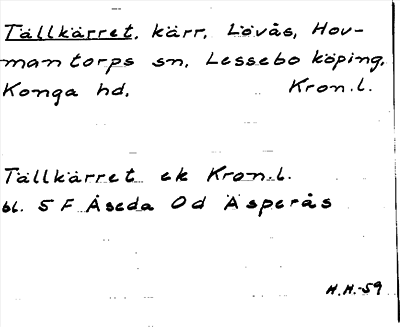 Tällkärret, kärr, Lövås, Hov-
mantorps sn, Lessebo köping,
Konga hd. Kron.l.
Tällkärret ek Kron.l.
bl. 5 F Åseda Od Äsperås
H.H.-59